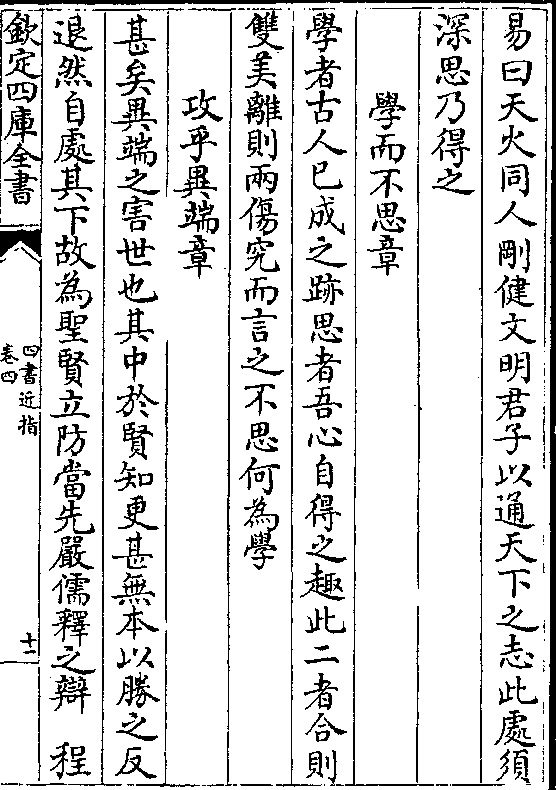 易曰天火同人剛健文明君子以通天下之志此處須
深思乃得之
學而不思章
學者古人已成之跡思者吾心自得之趣此二者合則
雙美離則兩傷究而言之不思何為學
攻乎異端章
甚矣異端之害世也其中於賢知更甚無本以勝之反
退然自處其下故為聖賢立防當先嚴儒釋之辯　程
欽定四庫全書
四書近指
卷四
十一